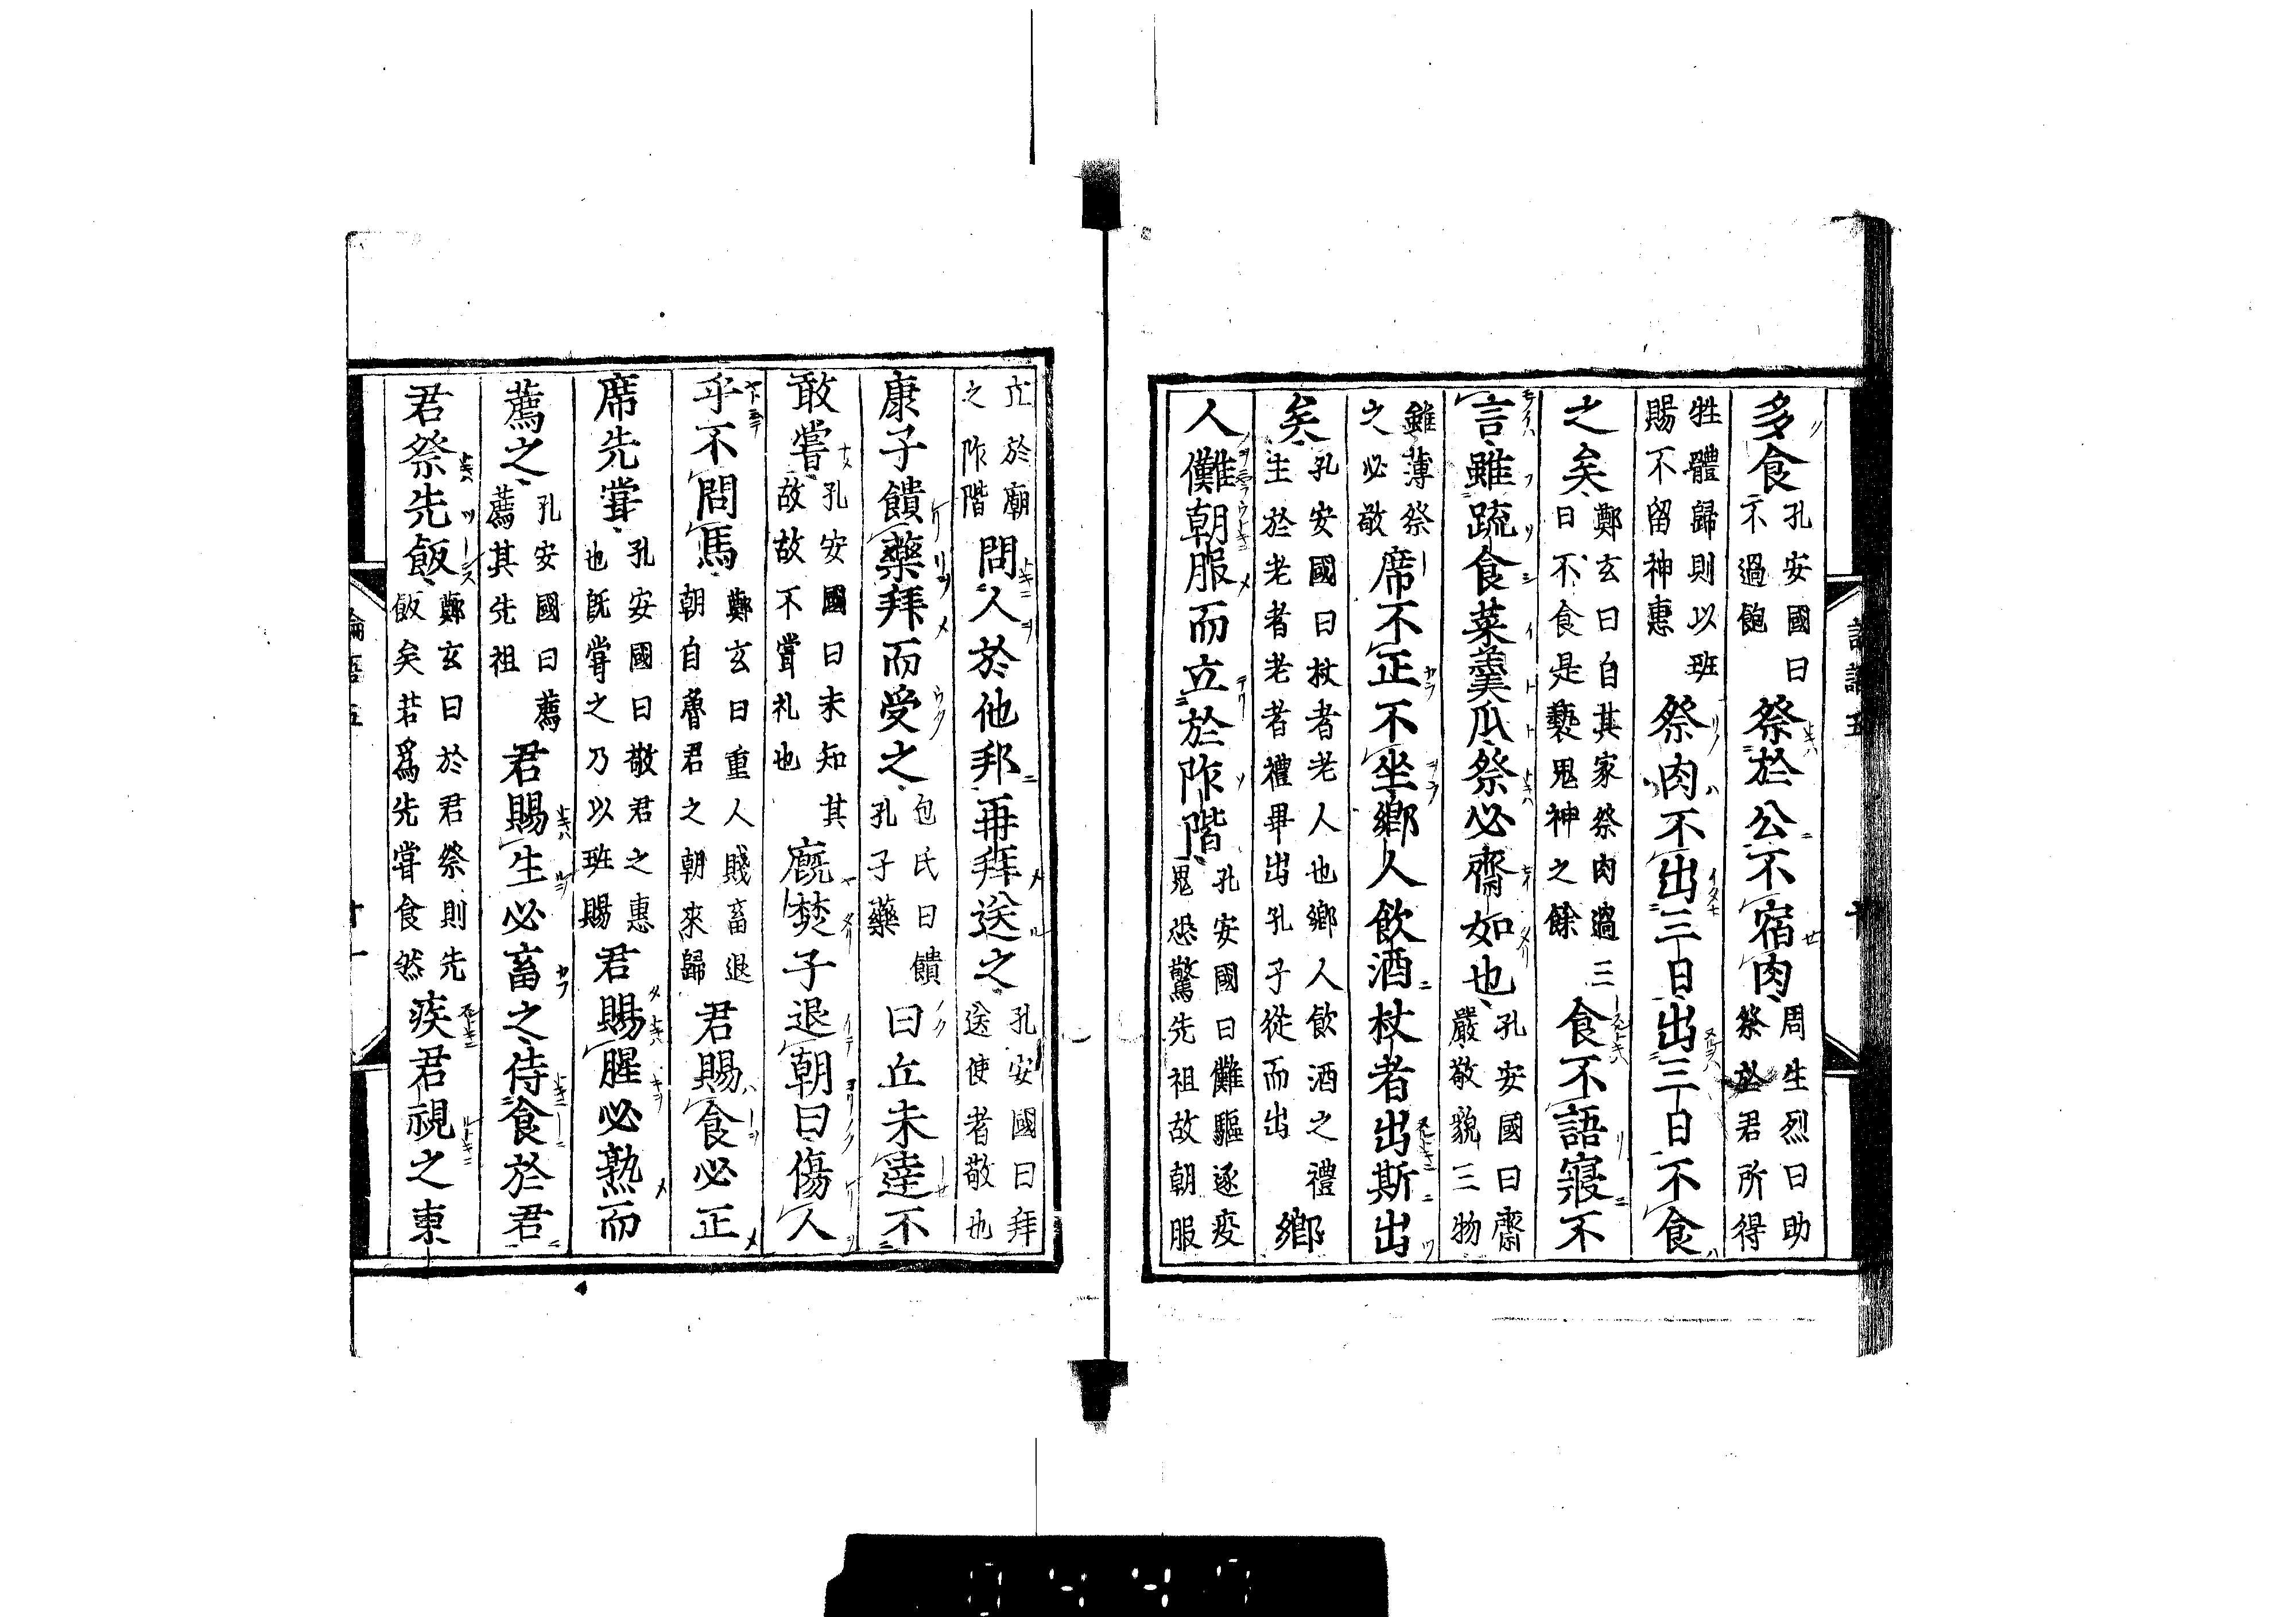 多食孔安國曰不過飽祭於公不宿肉周生烈曰助祭於君所得
牲體歸則以班賜不留神惠祭肉不出三日出三日不食
之矣鄭玄曰自其家祭肉過三日不食是褻鬼神之餘食不語寢不
言雖䟽食菜羹瓜祭必齋如也孔安國曰齋嚴敬貌三物
雖薄祭之必敬席不正不坐鄉人飲酒杖者出斯出
矣孔安國曰杖者老人也鄉人飲酒之禮生於老者老者禮畢出孔子從而出鄉
人儺朝服而立於阼階孔安國曰儺驅逐疫鬼恐驚先祖故朝服
立於廟之阼階問人於他邦再拜送之孔安國曰拜送使者敬也
康子饋藥拜而受之包氏曰饋孔子藥曰丘未達不
敢嘗孔安國曰未知其故故不嘗礼也廐焚子退朝曰傷人
乎不問馬鄭玄曰重人賤畜退朝自魯君之朝來歸君賜食必正
席先甞孔安國曰敬君之惠也既甞之乃以班賜君賜腥必熟而
薦之孔安國曰薦薦其先祖君賜生必畜之侍食於君
君祭先飯鄭玄曰於君祭則先飯矣若爲先甞食然疾君視之東